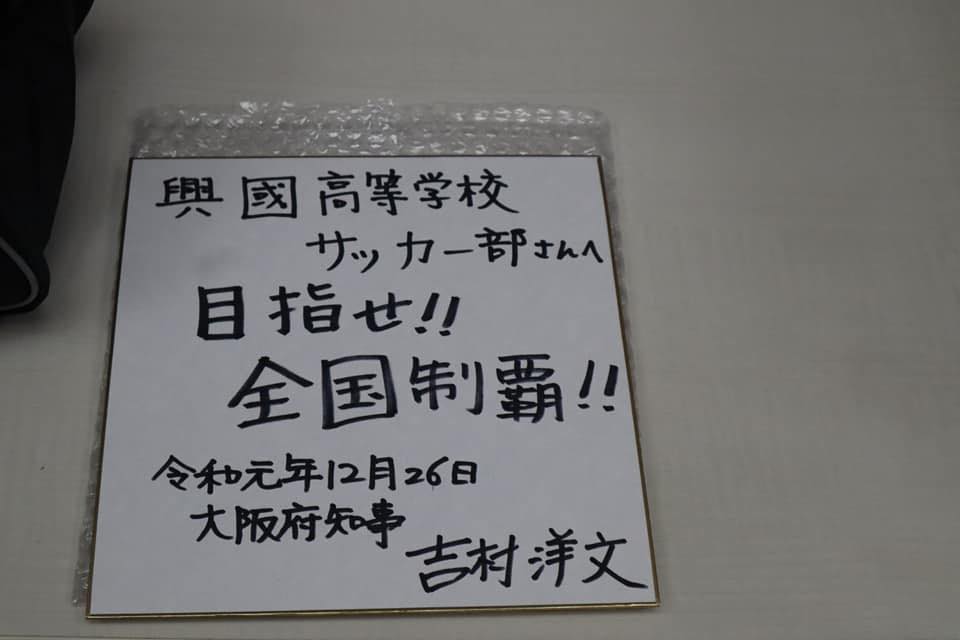 興國高等学校
サッカー部さんへ
目指せ!!
全国制覇!!
令和元年12月26日
大阪府知事
吉村洋文